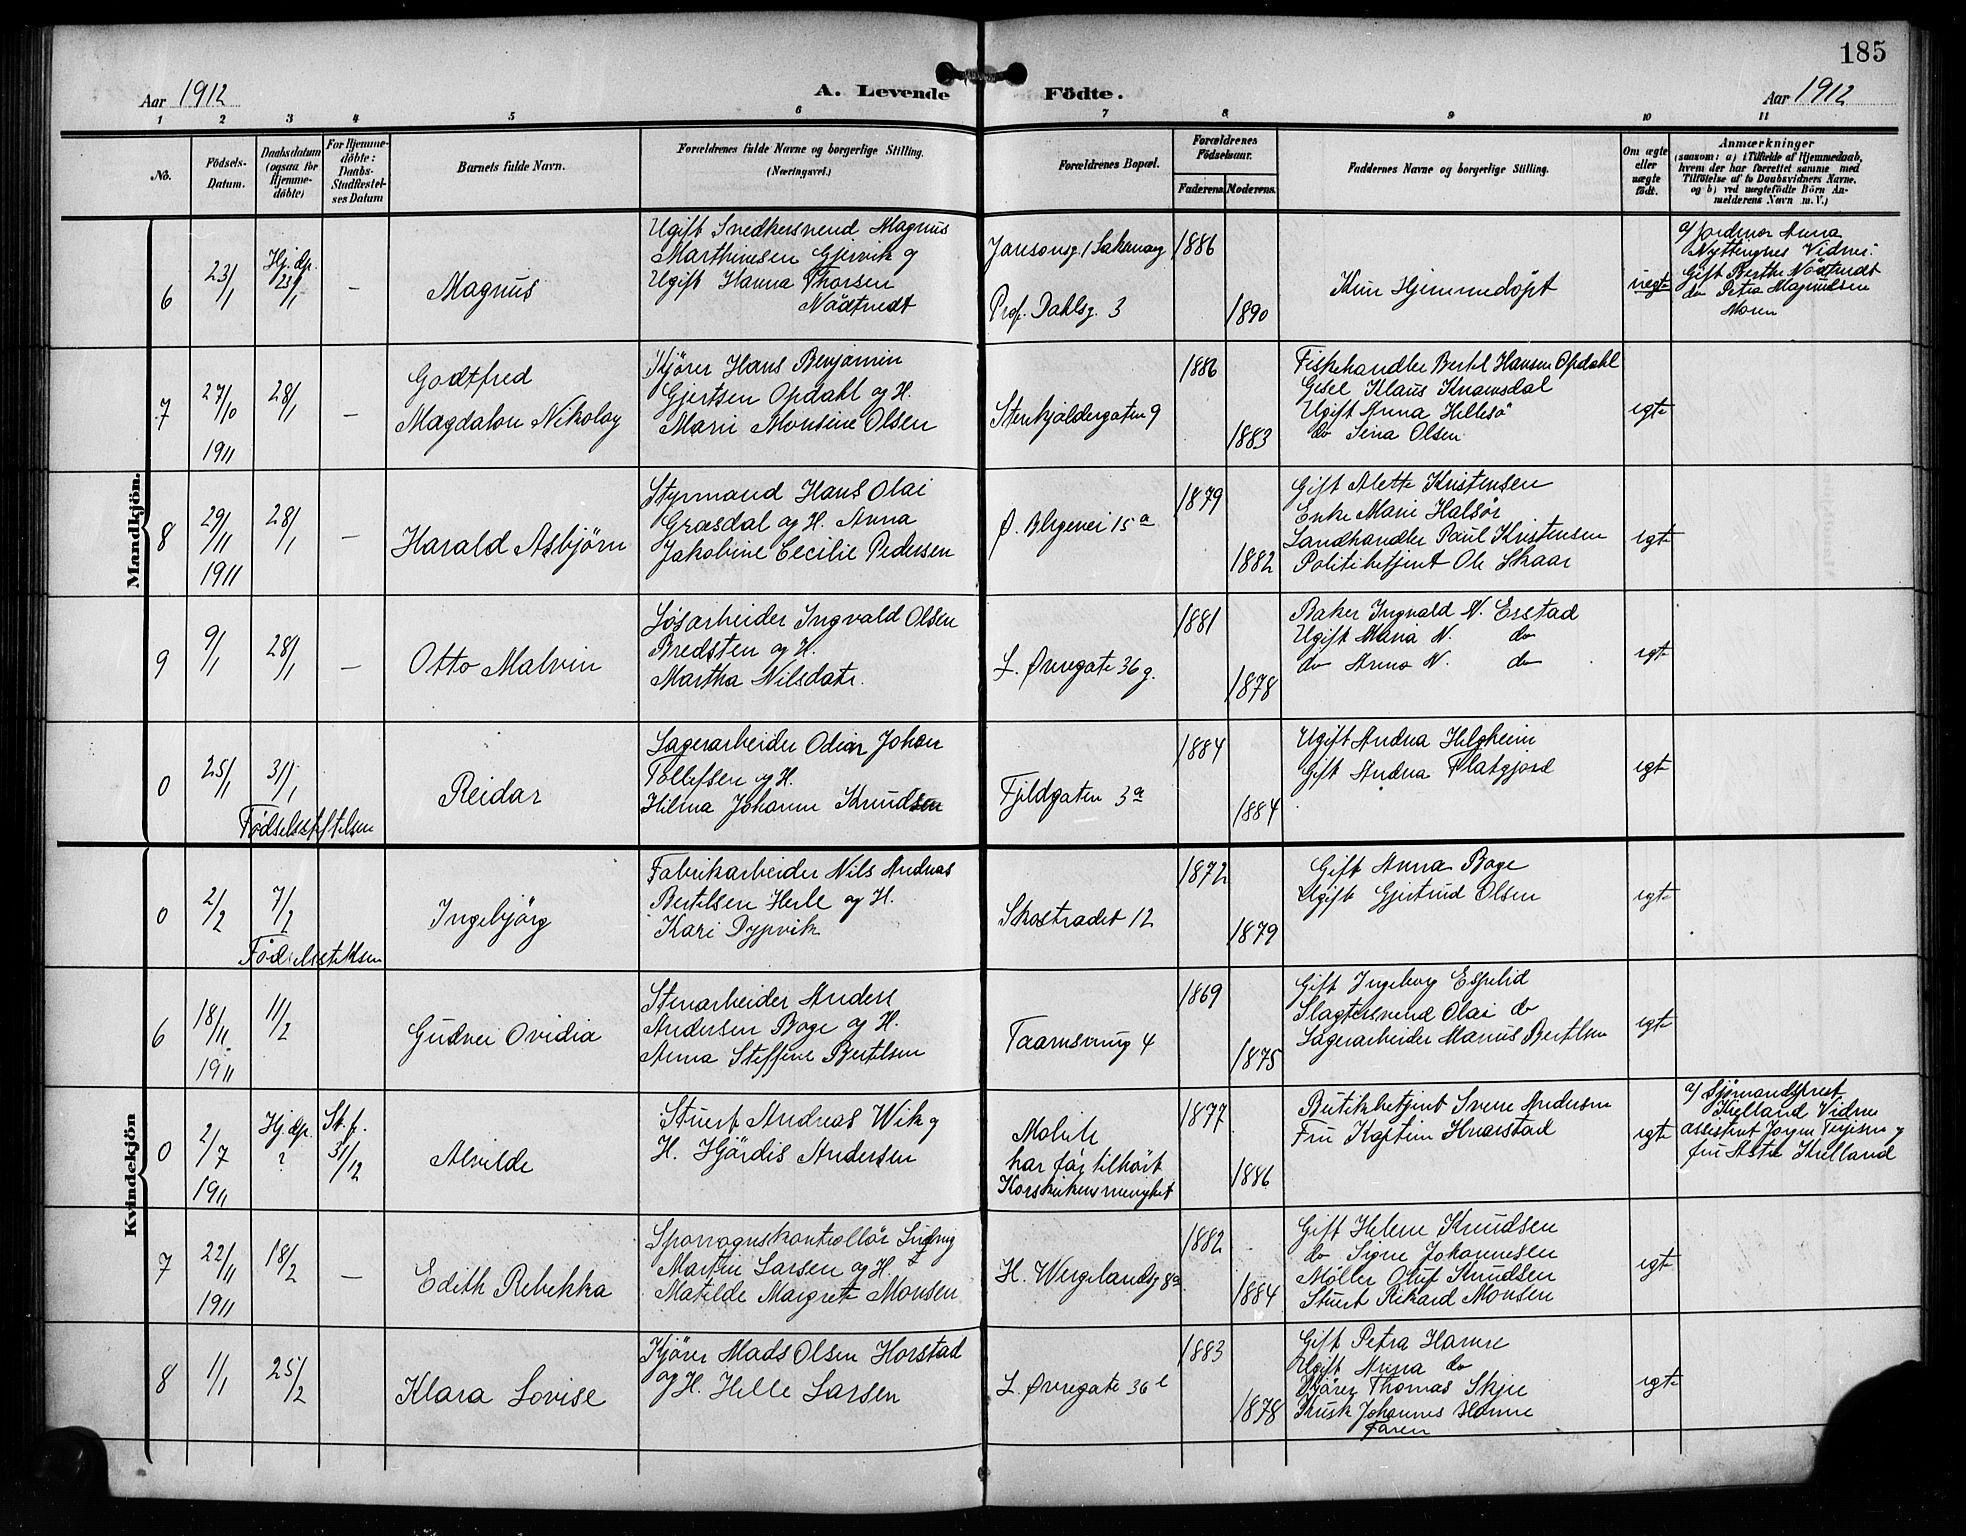 185
Aar 1912
A. Levende
Födte.
Aar 1912
1 2 3 4 5 6 7 8 9 10 11
No.
Födsels-
Datum.
Daabsdatum
(ogsaa for
Hjemme-
döbte)
For Hjemme-
döbte:
Daabs-
Stadfæstel-
ses Datum
Barnets fulde Navn.
Forældrenes fulde Navne og borgerlige Stilling.
(Næringsvei.)
Forældrenes Bopæl.
Forældrenes
Födselsaar.
Faderens. Moderens.
Faddernes Navne og borgerlige Stilling.
Om ægte
eller
uægte
födt.
Anmærkninger
(saasom: a) i Tilfælde af Hjemmedaab,
hvem der har forrettet samme med
Tilföielse af to Daabsvidners Navne.
og b) ved uægtefödte Börn An-
melderens Navn m. V.)
Mandkjön.
6
23/1
Hj. dp.
23/1
—
Magnus
Ugift Snedkersvend Magnus
Marthinsen Gjervik og
Ugift Hanna Thorsen
Nödtvedt
Prof. Dahlsg. 3
1886
1890
Kun Hjemmedöpt
uegte
a/ Jordmor Anna
Vidner:
Gift Berthe Nödtvedt
do Petra Magnusen
Moren
7
27/10
1911
28/1
—
Godtfred
Magdalon Nikolay
Kjörer Hans Benjamin
Gjertsen Opdahl og H.
Marie Monsine Olsen
Stenkjældergaten 9
1886
1883
Fiskehandler Bertel Hansen Opdahl
Gesel Klaus Knamsdal
Ugift Anna Hillesö
do Sina Olsen
egte
8
29/11
1911
28/1
—
Harald Asbjörn
Styrmand Hans Olai
Græsdal og H. Anna
Jakobine Cecilie Pedersen
Ø. Blegevei 15 a
1879
1882
Gift Alette Kristensen
Enke Marie Halsör
Landhandler Paul Kristensen
Politibetjent Ole Skaar
egte
9
9/1
28/1
—
Otto Malvin
Løsarbeider Ingvald Olsen
Bredsten og H.
Martha Nilsdatr.
L. Øvregate 36 g.
1881
1878
Baker Ingvald N. Erstad
Ugift Maria N. do
do Anna N. do
egte
0
25/1
31/1
Födselsstiftelsen
Reidar
Lagerarbeider Odin Johan
Tollefsen og H.
Hilma Johanne Knudsen
Fjeldgaten 3 a
1884
1884
Ugift Andrea Helgheim
Gift Andrea Flatgjord
egte
Kvindekjön
0
2/2
7/2
Födselsstiftelsen
Ingebjörg
Fabrikarbeider Nils Andreas
Bertilsen Herle og H.
Kari Dypvik
Skostrædet 12
1872
1879
Gift Anna Boge
Ugift Gjertrud Olsen
egte
6
18/11
1911
11/2
Gudnei Ovidia
Stenarbeider Anders
Andersen Boge og H.
Anna Steffine Bertelsen
4
1869
1875
Gift Ingeborg Espelid
Slagtersvend Olai do
Lagerarbeider Marius Bertelsen
egte
0
2/7
1911
Hj. dp.
?
St. f.
31/12
Alvilde
Stuert Andreas Wik og
H. Hjördis Andersen
Mobile
har för tilhört
Korskirkens menighet
1877
1886
Butikbetjent Svene Andersen
Fru Kaptein Knarstad
egte
a/ Sjömandsprest
Kielland Vidner
assistent Jørgen Terjesen og
fru Astri Kielland
7
22/11
1911
18/2
—
Edith Rebekka
Sporvognskontrollør Ludvig
Martin Larsen og H.
Matilde Margrete Monsen
H. Wergelandsg 8a
1882
1884
Gift Helene Knudsen
do Signe Johannesen
Møller Oluf Knudsen
Stuert Rikard Monsen
egte
8
1/1
25/2
Klara Lovise
Kjörer Mads Olsen Horstad
og H. Helle Larsen
L. Øvregate 36 e
1883
1878
Gift Petra Hamre
Ugift Anna do
Kjörer Thomas Skjee
Brusk Johannes Hamre
Faren
egte